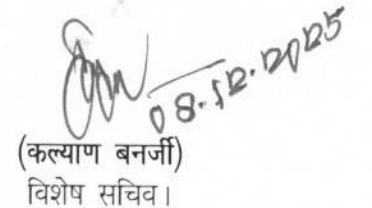 08.12.2025
(कल्याण बनर्जी)
विशेष सचिव।